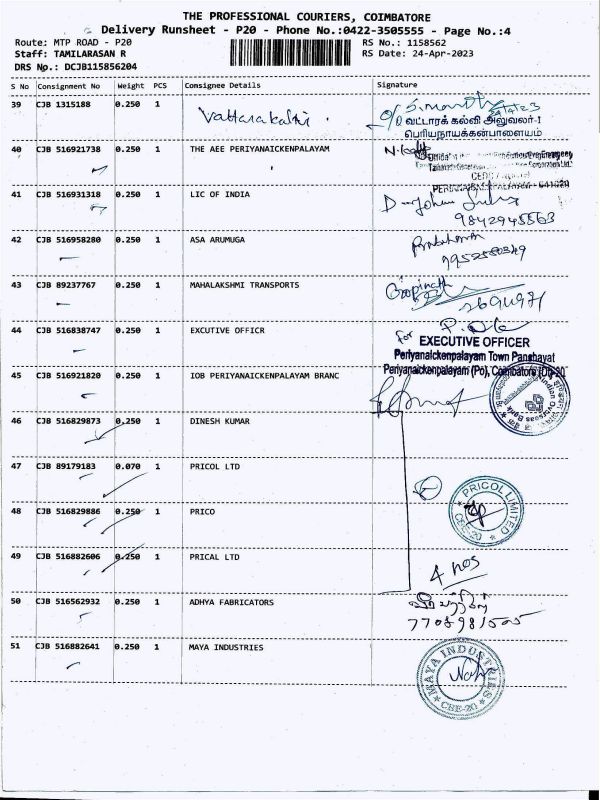 THE PROFESSIONAL COURIERS, COIMBATORE
Delivery Runsheet - P20 - Phone No.:0422-3505555 - Page No.:4
Route: MTP ROAD - P20 RS No.: 1158562
Staff: TAMILARASAN R RS Date: 24-Apr-2023
DRS No.: DCJB115856204
S No Consignment No Weight PCS Consignee Details Signature
39 CJB 1315188 0.250 1 Vattarakalvi
24/4/23
வட்டாரக் கல்வி அலுவலர்-1
பெரியநாயக்கன்பாளையம்
40 CJB 516921738 0.250 1 THE AEE PERIYANAICKENPALAYAM
PERIYANAICKENPALAYAM - 641020
41 CJB 516931318 0.250 1 LIC OF INDIA
9842945563
42 CJB 516958280 0.250 1 ASA ARUMUGA
Prabakaran
43 CJB 89237767 0.250 1 MAHALAKSHMI TRANSPORTS Gopinath
44 CJB 516838747 0.250 1 EXCUTIVE OFFICR
for EXECUTIVE OFFICER
Periyanaickenpalayam Town Panchayat
Periyanaickenpalayam (Po), Coimbatore (Dt)-20
45 CJB 516921820 0.250 1 IOB PERIYANAICKENPALAYAM BRANC
Indian Overseas Bank
46 CJB 516829873 0.250 1 DINESH KUMAR
47 CJB 89179183 0.070 1 PRICOL LTD
48 CJB 516829886 0.250 1 PRICO
PRICOL LIMITED
CBE-20
49 CJB 516882606 0.250 1 PRICAL LTD
4 nos
50 CJB 516562932 0.250 1 ADHYA FABRICATORS
51 CJB 516882641 0.250 1 MAYA INDUSTRIES
MAYA INDUSTRIES
CBE-20